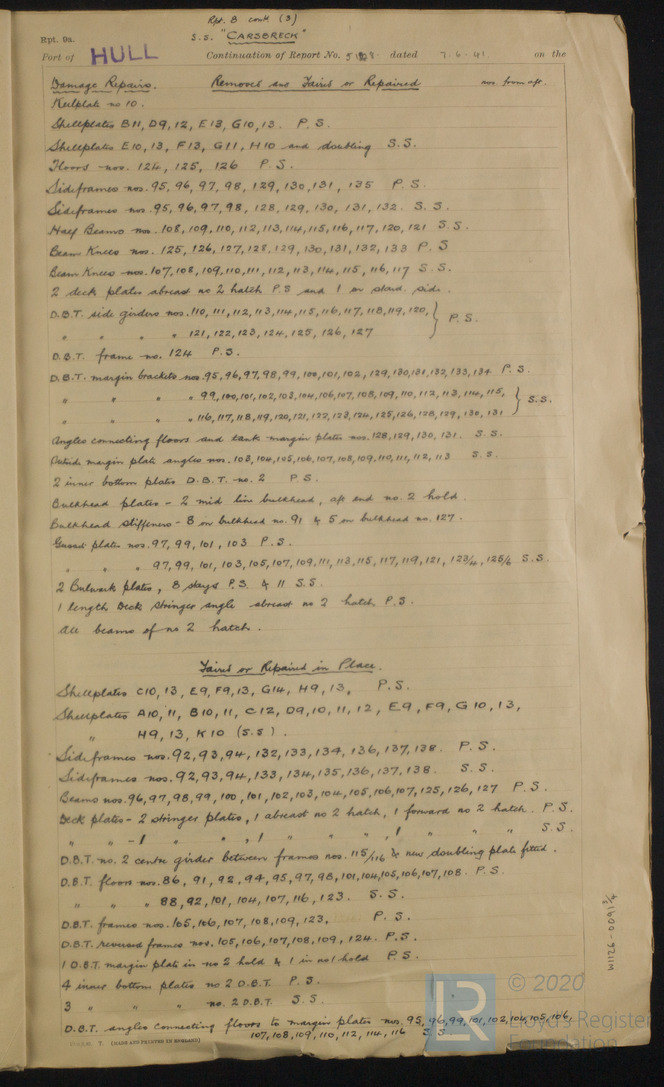 Rpt. B cont (3)
Rpt. 9a. S.S. "CARSBRECK"
Port of HULL Continuation of Report No. dated 7.6.41 on the
Damage Repairs. Removed and Faired or Repaired nos. from aft.
Keelplate no 10.
Shellplates B11, D9, 12, E13, G10, 13. P.S.
Shellplates E10, 13, F13, G11, H10 and doubling S.S.
Floors nos. 124, 125, 126 P.S.
Sideframes nos. 95, 96, 97, 98, 129, 130, 131, 135 P.S.
Sideframes nos. 95, 96, 97, 98, 128, 129, 130, 131, 132. S.S.
Half Beams nos. 108, 109, 110, 112, 113, 114, 115, 116, 117, 120, 121 S.S.
Beam Knees nos. 125, 126, 127, 128, 129, 130, 131, 132, 133 P.S
Beam Knees nos. 107, 108, 109, 110, 111, 112, 113, 114, 115, 116, 117 S.S.
2 deck plates abreast no 2 hatch P.S and 1 on stard. side.
D.B.T. side girders nos. 110, 111, 112, 113, 114, 115, 116, 117, 118, 119, 120, } P.S.
" " " " 121, 122, 123, 124, 125, 126, 127
D.B.T. frame no. 124 P.S.
D.B.T. margin brackets nos. 95, 96, 97, 98, 99, 100, 101, 102, 129, 130, 131, 132, 133, 134 P.S.
" " " " 99, 100, 101, 102, 103, 104, 106, 107, 108, 109, 110, 112, 113, 114, 115, } S.S.
" " " " 116, 117, 118, 119, 120, 121, 122, 123, 124, 125, 126, 128, 129, 130, 131
Angles connecting floors and tank margin plates nos. 128, 129, 130, 131. S.S.
Outside margin plate angles nos. 103, 104, 105, 106, 107, 108, 109, 110, 111, 112, 113 S.S.
2 inner bottom plates D.B.T. no. 2 P.S.
Bulkhead plates - 2 mid line bulkhead, aft end no. 2 hold.
Bulkhead stiffeners - 8 on bulkhead no. 91 & 5 on bulkhead no. 127.
Gusset plates nos. 97, 99, 101, 103 P.S.
" " " 97, 99, 101, 103, 105, 107, 109, 111, 113, 115, 117, 119, 121, 123/4, 125/6 S.S.
2 Bulwark plates, 8 stays P.S. & 11 S.S.
1 length Deck stringer angle abreast no 2 hatch P.S.
All beams of no 2 hatch.
Faired or Repaired in Place.
Shellplates C10, 13, E9, F9, 13, G14, H9, 13, P.S.
Shellplates A10, 11, B10, 11, C12, D9, 10, 11, 12, E9, F9, G10, 13,
" H9, 13, K10 (S.S).
Sideframes nos. 92, 93, 94, 132, 133, 134, 136, 137, 138. P.S.
Sideframes nos. 92, 93, 94, 133, 134, 135, 136, 137, 138. S.S.
Beams nos. 96, 97, 98, 99, 100, 101, 102, 103, 104, 105, 106, 107, 125, 126, 127 P.S.
Deck plates - 2 stringer plates, 1 abreast no 2 hatch, 1 forward no 2 hatch. P.S.
" " - 1 " " , 1 " " " , 1 " " " S.S.
D.B.T. no. 2 centre girder between frames nos. 115/116 & new doubling plate fitted.
D.B.T. floors nos. 86, 91, 92, 94, 95, 97, 98, 101, 104, 105, 106, 107, 108. P.S.
" " " 88, 92, 101, 104, 107, 116, 123. S.S.
D.B.T. frames nos. 105, 106, 107, 108, 109, 123, P.S.
D.B.T. reversed frames nos. 105, 106, 107, 108, 109, 124. P.S.
1 D.B.T. margin plate in no 2 hold & 1 in no 1 hold P.S.
4 inner bottom plates no 2 D.B.T. P.S.
3 " " " no. 2 D.B.T. S.S.
D.B.T. angles connecting floors to margin plates nos. 95, 96, 99, 101, 102, 104, 105, 106,
107, 108, 109, 110, 112, 114, 116 S.S.
[MADE AND PRINTED IN ENGLAND]
© 2020
Lloyd's Register
Foundation